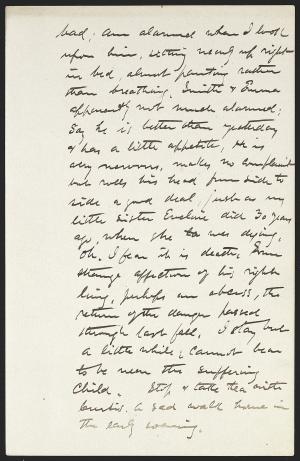 bad; am alarmed when I look
upon him, sitting nearly upright
in bed, almost panting rather
than breathing. Smith & Emma
apparently not much alarmed;
say he is better than yesterday
& has a little appetite. He is
very nervous, makes no complaint
but rolls his head from side to
side a good deal, just as my
little sister Eveline did 30 years
ago, when she was dying.
Oh. I fear it is death. Some
strange affection of his right
lung, perhaps an abscess, the
return of the danger passed
through last fall. I stay but
a little while; cannot bear
to be near this suffering
child. Stop & take tea with
Curtis. A sad walk home in
the early evening.